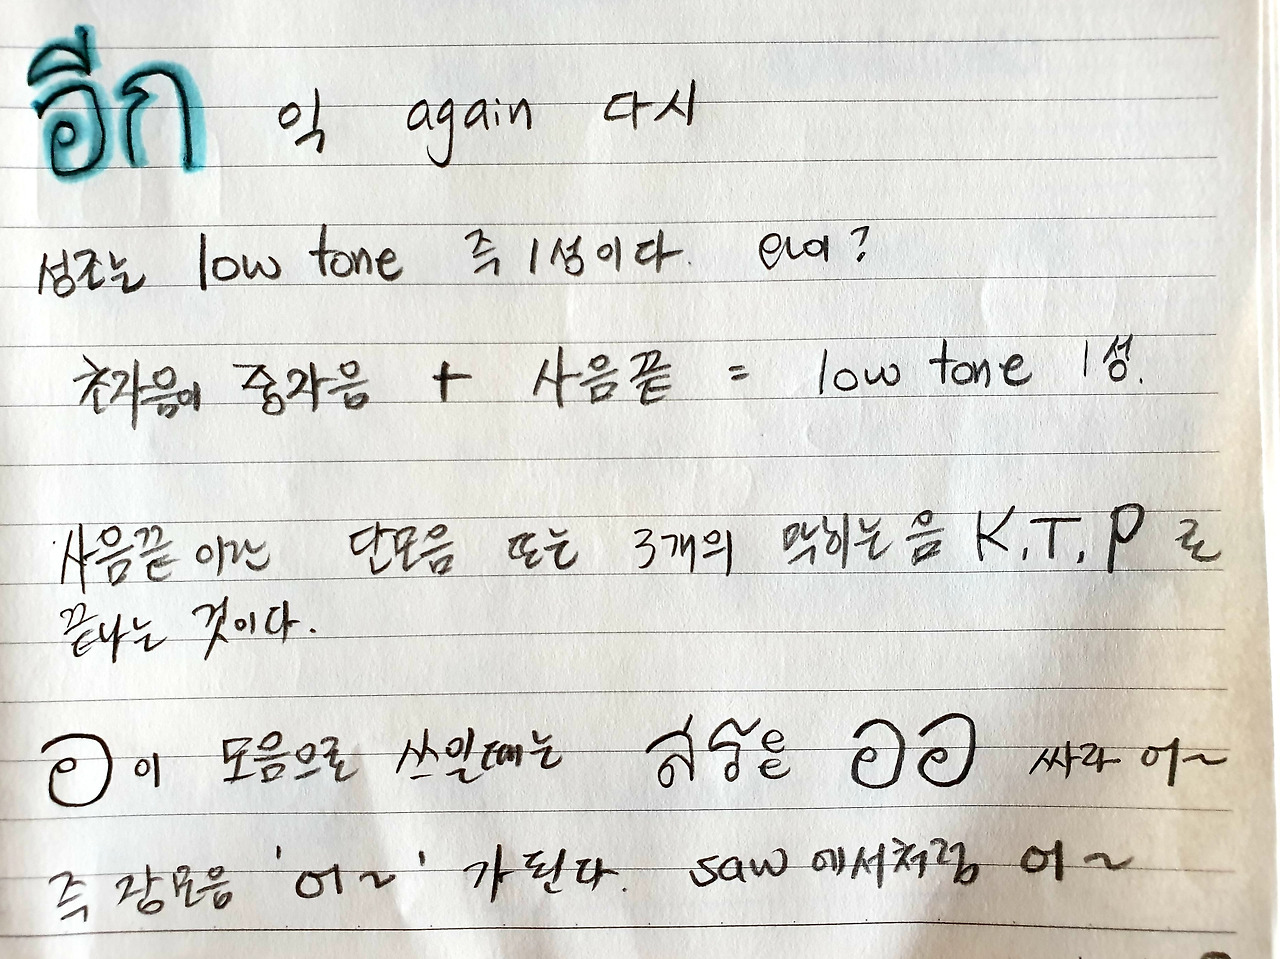 อีก 익 again 다시
성조는 low tone 즉 1성이다. 왜여?
초자음이 중자음 + 사음끝 = low tone 1성.
사음끝이란 단모음 또는 3개의 막히는 음 K.T.P 로
끝나는 것이다.
อ 이 모음으로 쓰일때는 สระ ออ 싸라 어~
즉 장모음 '어~' 가 된다. saw 에서처럼 어~